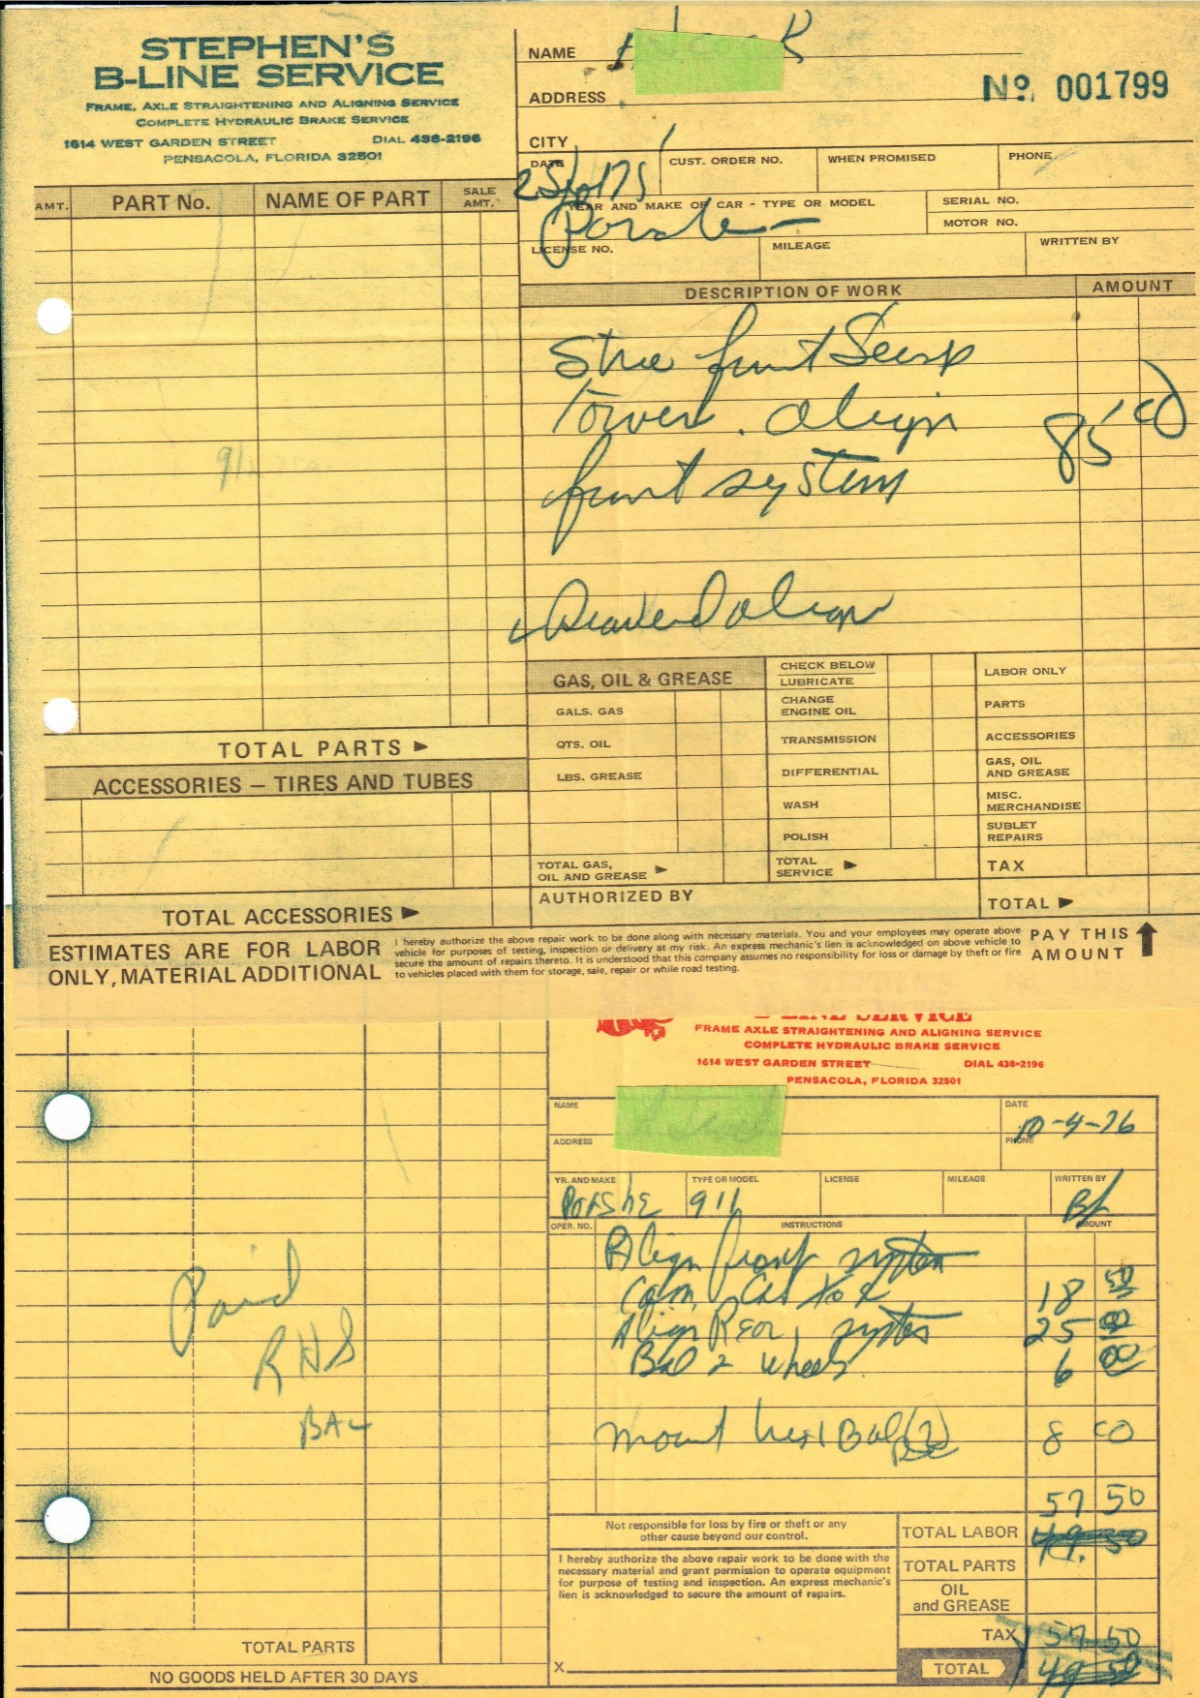 STEPHEN'S
B-LINE SERVICE
FRAME, AXLE STRAIGHTENING AND ALIGNING SERVICE
COMPLETE HYDRAULIC BRAKE SERVICE
1614 WEST GARDEN STREET DIAL 438-2196
PENSACOLA, FLORIDA 32501
NAME
ADDRESS
No. 001799
CITY
DATE CUST. ORDER NO. WHEN PROMISED PHONE
YEAR AND MAKE OF CAR - TYPE OR MODEL SERIAL NO.
MOTOR NO.
LICENSE NO. MILEAGE WRITTEN BY
AMT. PART No. NAME OF PART SALE AMT.
DESCRIPTION OF WORK AMOUNT
front
Tower. align 85
front system
align
TOTAL PARTS ►
ACCESSORIES – TIRES AND TUBES
TOTAL ACCESSORIES ►
GAS, OIL & GREASE CHECK BELOW LABOR ONLY
LUBRICATE
GALS. GAS CHANGE ENGINE OIL PARTS
QTS. OIL TRANSMISSION ACCESSORIES
LBS. GREASE DIFFERENTIAL GAS, OIL AND GREASE
WASH MISC. MERCHANDISE
POLISH SUBLET REPAIRS
TOTAL GAS, OIL AND GREASE ► TOTAL SERVICE ► TAX
AUTHORIZED BY TOTAL ►
ESTIMATES ARE FOR LABOR
ONLY, MATERIAL ADDITIONAL
I hereby authorize the above repair work to be done along with necessary materials. You and your employees may operate above
vehicle for purposes of testing, inspection or delivery at my risk. An express mechanic's lien is acknowledged on above vehicle to
secure the amount of repairs thereto. It is understood that this company assumes no responsibility for loss or damage by theft or fire
to vehicles placed with them for storage, sale, repair or while road testing.
PAY THIS
AMOUNT
B-LINE SERVICE
FRAME AXLE STRAIGHTENING AND ALIGNING SERVICE
COMPLETE HYDRAULIC BRAKE SERVICE
1614 WEST GARDEN STREET DIAL 438-2196
PENSACOLA, FLORIDA 32501
NAME DATE
10-4-76
ADDRESS PHONE
YR. AND MAKE TYPE OR MODEL LICENSE MILEAGE WRITTEN BY
Porshe 911
OPER. NO. INSTRUCTIONS AMOUNT
Align front system
18 50
Align Rear system 25 00
Bal 2 wheels 6 00
mount Bal (2) 8 00
57 50
Paid
RHS
BAL
Not responsible for loss by fire or theft or any
other cause beyond our control.
TOTAL LABOR 49.50
I hereby authorize the above repair work to be done with the
necessary material and grant permission to operate equipment
for purpose of testing and inspection. An express mechanic's
lien is acknowledged to secure the amount of repairs.
TOTAL PARTS
OIL
and GREASE
TAX 57 50
X TOTAL 49 50
TOTAL PARTS
NO GOODS HELD AFTER 30 DAYS